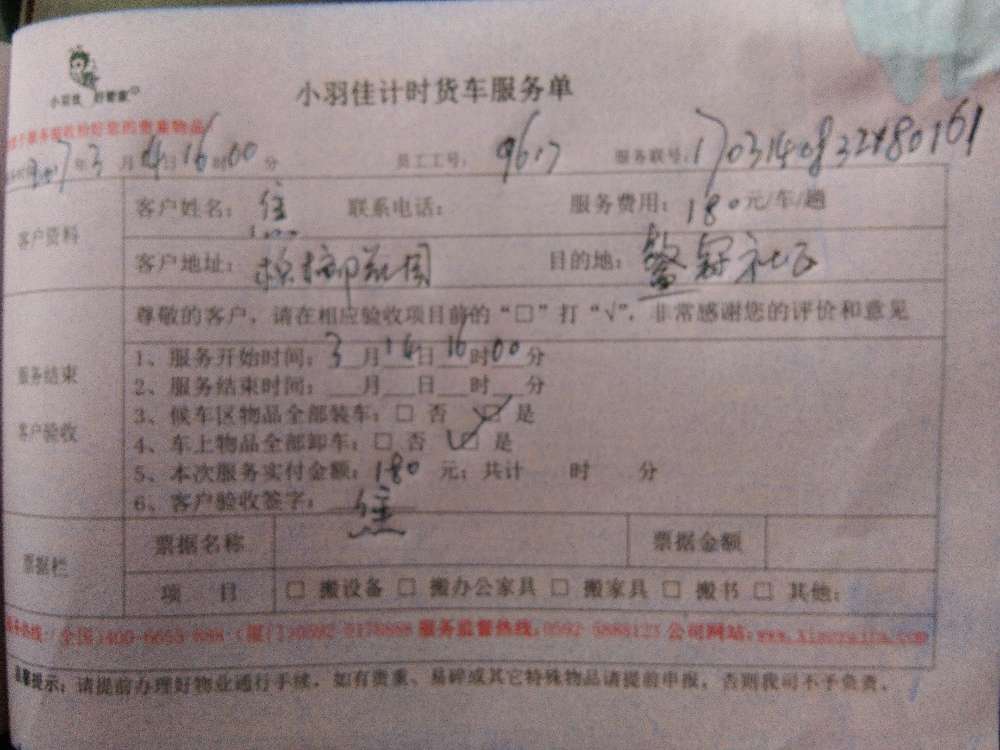 小羽佳 好管家
小羽佳计时货车服务单
您的贵重物品
年3月14日16时00分 员工工号: 9617 服务联号: 1703140832480161
客户资料
客户姓名: 联系电话: 服务费用: 180元/车/趟
客户地址: 目的地: 社区
尊敬的客户,请在相应验收项目前的“□”打“√”,非常感谢您的评价和意见
服务结束
客户验收
1、服务开始时间:3月14日16时00分
2、服务结束时间:___月___日___时___分
3、候车区物品全部装车:□ 否 □ 是
4、车上物品全部卸车:□ 否 □ 是
5、本次服务实付金额:180 元;共计 时 分
6、客户验收签字:焦
票据栏
票据名称 票据金额
项 目 □ 搬设备 □ 搬办公家具 □ 搬家具 □ 搬书 □ 其他:
服务热线:(全国)400-6653-888 (厦门)0592-5176888 服务监督热线:0592-5888123 公司网站:
温馨提示:请提前办理好物业通行手续,如有贵重、易碎或其它特殊物品请提前申报,否则我司不予负责。